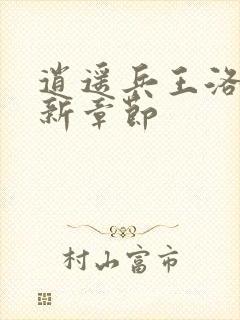 逍遥兵王洛
新章节
村山富市